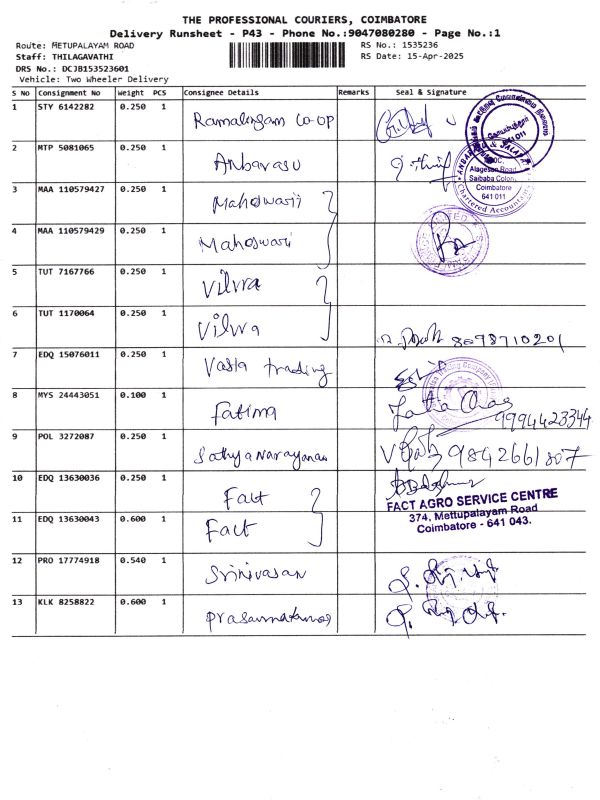 THE PROFESSIONAL COURIERS, COIMBATORE
Delivery Runsheet - P43 - Phone No.:9047080280 - Page No.:1
Route: METUPALAYAM ROAD
RS No.: 1535236
Staff: THILAGAVATHI
RS Date: 15-Apr-2025
DRS No.: DCJB153523601
Vehicle: Two Wheeler Delivery
S No Consignment No Weight PCS Consignee Details Remarks Seal & Signature
1 STY 6142282 0.250 1 Ramalingam Co-op
641 011
2 MTP 5081065 0.250 1 Anbarasu
Alagesan Road
Saibaba Colony
Coimbatore
641 011
Chartered Accountants
3 MAA 110579427 0.250 1 Maheswari
4 MAA 110579429 0.250 1 Maheswari
5 TUT 7167766 0.250 1 Vilwa
6 TUT 1170064 0.250 1 Vilwa 8098710201
7 EDQ 15076011 0.250 1 Vasta trading
8 MYS 24443051 0.100 1 Fatima
9994423344
9 POL 3272087 0.250 1 Sathyanarayanan 9842661807
10 EDQ 13630036 0.250 1 Fact
FACT AGRO SERVICE CENTRE
374, Mettupalayam Road
Coimbatore - 641 043.
11 EDQ 13630043 0.600 1 Fact
12 PRO 17774918 0.540 1 Srinivasan
13 KLK 8258822 0.600 1 Prasannakumar